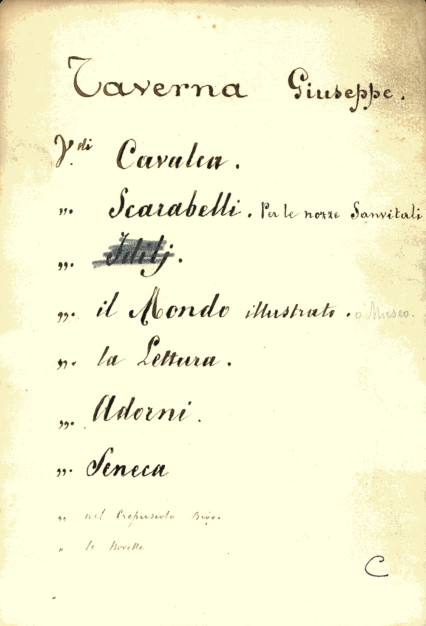 Taverna Giuseppe.
V.di Cavalca.
„. Scarabelli. Per le nozze Sanvitali
„. Idilj.
„. il Mondo illustrato. o Museo.
„. la Lettura.
„. Adorni.
„. Seneca
„ nel Crepuscolo
„ le Novelle
C